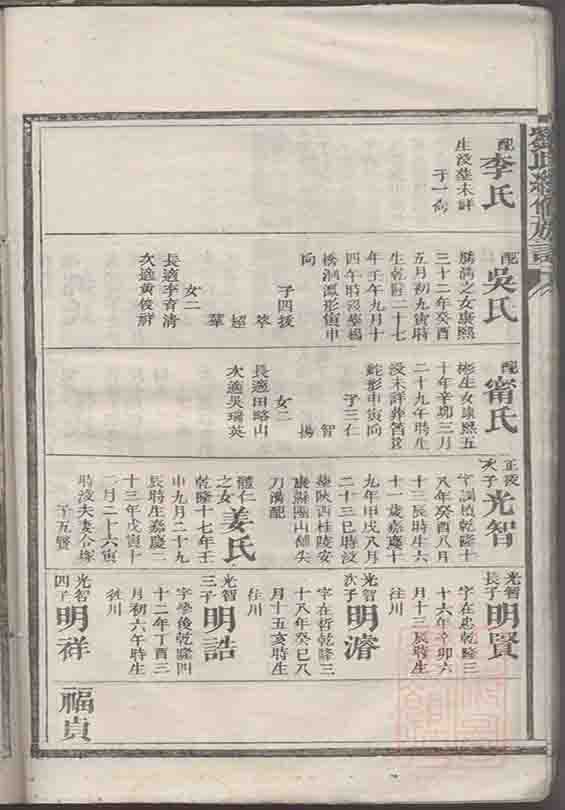 配
李氏
生沒塟未詳
子一
配
吳氏
騰
之女康熙
三十二年癸酉
五月初九寅時
生乾隆二十七
年壬午九月十
四午時
形寅申
向
子四
萃
超
華
女二
長適李育清
次適黃俊
配
甯氏
彬生女康熙五
十年辛卯三月
二十九午時生
沒未詳葬
蛇形申寅向
子三仁
智
揚
女二
長適田略山
次適吳瑞英
正
次子
光智
字
乾隆十
八年癸酉八月
十三辰時生六
十一歲嘉慶十
九年甲戌八月
二十三巳時沒
塟陝西桂陵安
康縣
山
頭
刀
配
姜氏
體仁
之女
乾隆十七年壬
申九月二十九
辰時生嘉慶二
十三年戊寅十
二月二十六寅
時沒夫妻合塚
子五賢
光智
長子
明賢
字在忠乾隆三
十六年辛卯六
月十三辰時生
往川
光智
次子
明濬
字在哲乾隆三
十八年癸巳八
月十五亥時生
往川
光智
三子
明誥
字學後乾隆四
十二年丁酉三
月初六午時生
川
光智
四子
明祥
福貞